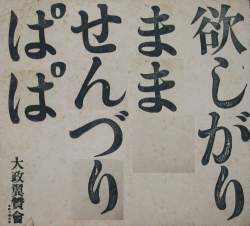 欲しがり
まま
せんづり
ぱぱ
大政翼賛會